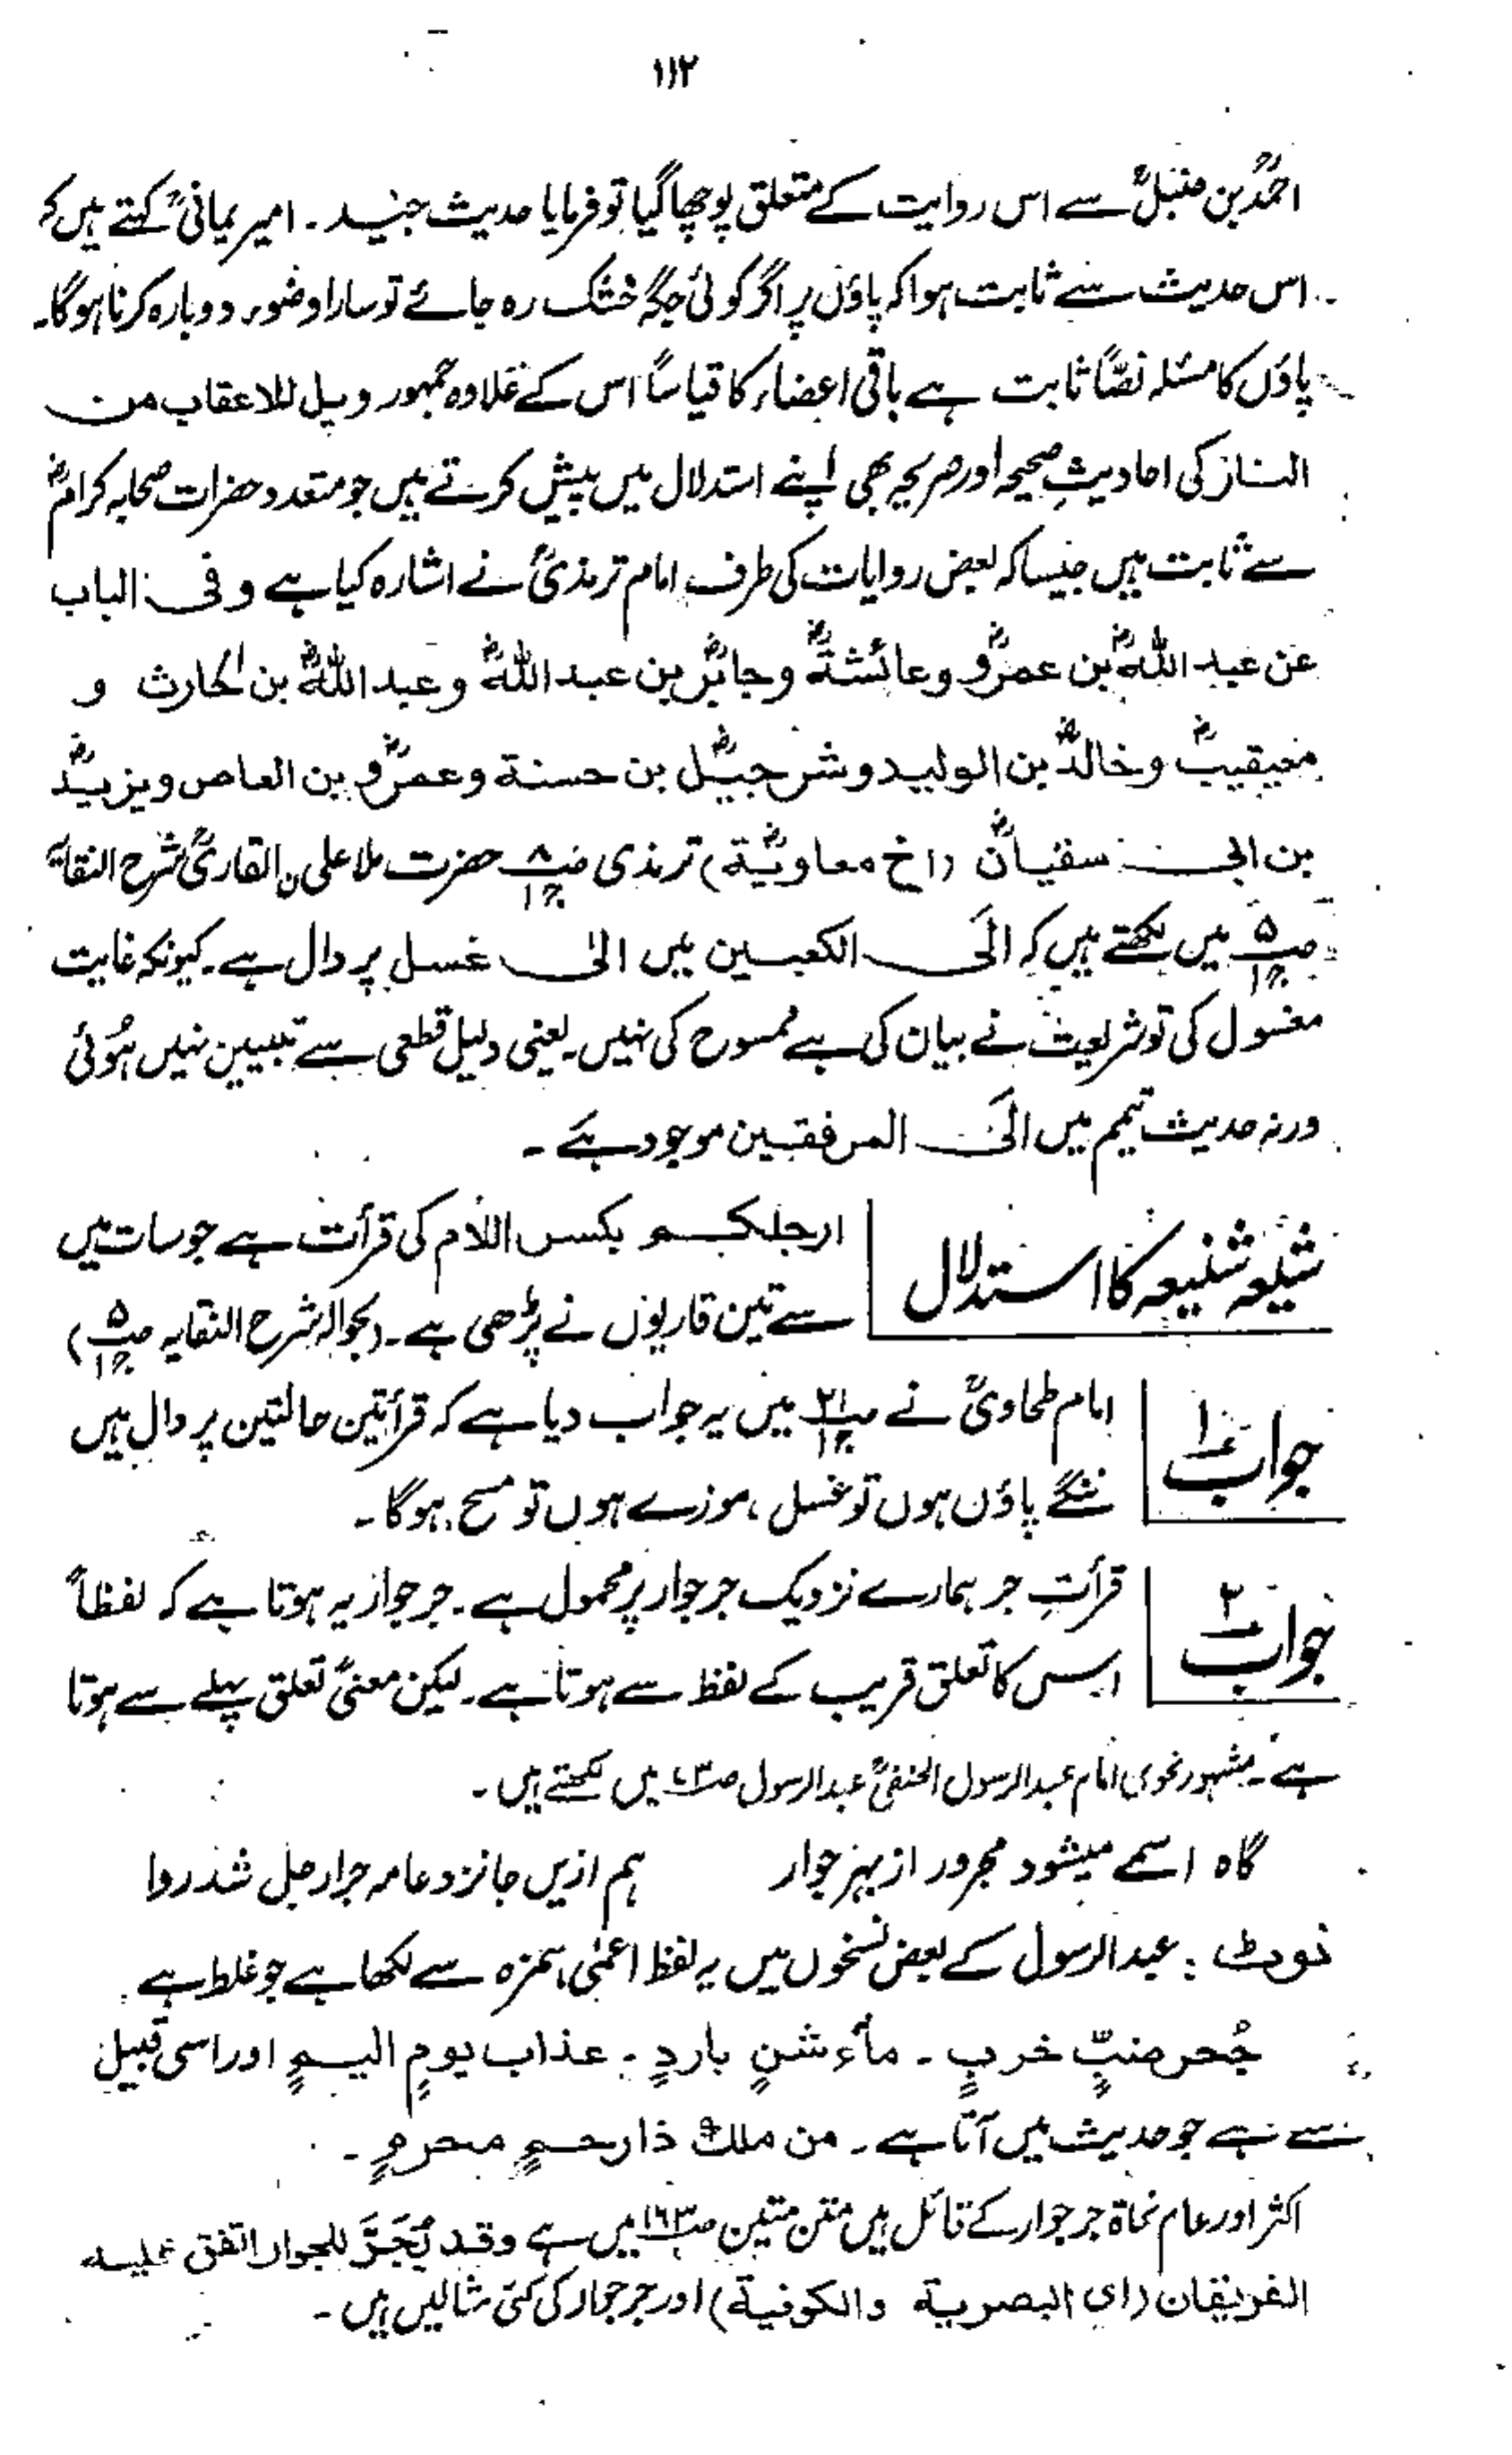 ۱۱۲
احمدؒ بن حنبلؒ سے اس روایت کے متعلق پوچھا گیا تو فرمایا حدیث جیّد ۔ امیر یمانیؒ کہتے ہیں کہ
اس حدیث سے ثابت ہوا کہ پاؤں پر اگر کوئی جگہ خشک رہ جائے تو سارا وضوء دوبارہ کرنا ہوگا۔
پاؤں کا مسئلہ نصّاً ثابت ہے باقی اعضاء کا قیاساً اس کے علاوہ جمہور ویل للاعقاب من
النار کی احادیثِ صحیحہ اور صریحہ بھی اپنے استدلال میں پیش کرتے ہیں جو متعدد حضرات صحابہ کرامؓ
سے ثابت ہیں جیسا کہ بعض روایات کی طرف امام ترمذیؒ نے اشارہ کیا ہے وفی الباب
عن عبد اللهؓ بن عمرؓو وعائشةؓ وجابرؓ بن عبد اللهؓ وعبد اللهؓ بن الحارث و
معیقیبؓ وخالدؓ بن الولید وشرجیلؓ بن حسنة وعمرؓو بن العاص ویزیدؓ
بن ابی سفیانؓ (اخ معاویةؓ) ترمذی صـ۸ ج۱ حضرت ملا علی ن القاریؒ شرح النقایہ
صـ۵ ج۱ میں لکھتے ہیں کہ الَی الکعبین میں الیٰ غسل پر دال ہے۔ کیونکہ غایت
مغسول کی تو شریعت نے بیان کی ہے ممسوح کی نہیں۔ یعنی دلیل قطعی سے تبیین نہیں ہُوئی
ورنہ حدیث تیمم میں الَی المرفقین موجود ہے ۔
شیعہ شنیعہ کا استدلال
ارجلکم بکسر اللام کی قرأت ہے جو سات میں
سے تین قاریوں نے پڑھی ہے۔ (بحوالہ شرح النقایہ صـ۵ ج۱)
جواب ۱
امام طحاویؒ نے صـ۲۱ ج۱ میں یہ جواب دیا ہے کہ قرأتین حالتین پر دال ہیں
ننگے پاؤں ہوں تو غسل، موزے ہوں تو مسح ہوگا ۔
جواب ۲
قرأتِ جر ہمارے نزدیک جر جوار پر محمول ہے۔ جر جوار یہ ہوتا ہے کہ لفظاً
اس کا تعلق قریب کے لفظ سے ہوتا ہے۔ لیکن معنیً تعلق پہلے سے ہوتا
ہے۔ مشہور نحوی امام عبدالرسول الحنفیؒ عبدالرسول میں لکھتے ہیں ۔
گاہ اسمے میشود مجرور از بہر جوار ہم ازیں جا نزد عامہ جرارجل شد روا
نوٹ : عبدالرسول کے بعض نسخوں میں یہ لفظ اعمیٰ ہمزہ سے لکھا ہے جو غلط ہے
جُحر ضبٍّ خربٍ ۔ مأء شنٍ باردٍ ۔ عذاب یومٍ الیمٍ اور اسی قبیل
سے ہے جو حدیث میں آتا ہے ۔ من ملک ذا رحمٍ محرمٍ ۔
اکثر اور عام نحاة جر جوار کے قائل ہیں متن متین صـ۱۶۳ میں ہے وقد یُجَرَّ للجوار اتفق علیہ
الفریقان (ای البصریة والکوفیة) اور جر جوار کی کئی مثالیں ہیں ۔